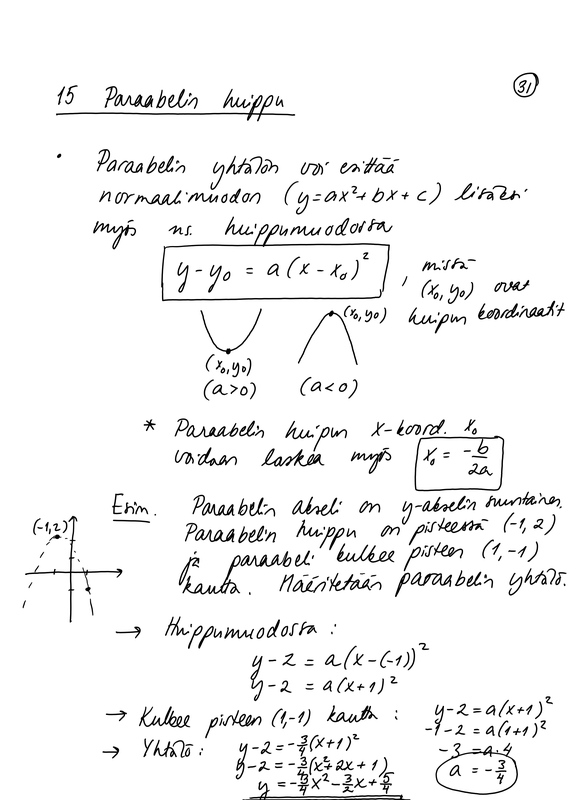 31
15 Paraabelin huippu
• Paraabelin yhtälön voi esittää
normaalimuodon (y=ax²+bx+c) lisäksi
myös ns. huippumuodossa
y-y₀ = a(x-x₀)² , missä
(x₀,y₀) ovat
huipun koordinaatit
(x₀,y₀)
(x₀,y₀)
(a>0) (a<0)
* Paraabelin huipun x-koord. x₀
voidaan laskea myös x₀ = -b/2a
Esim. Paraabelin akseli on y-akselin suuntainen.
Paraabelin huippu on pisteessä (-1,2)
ja paraabeli kulkee pisteen (1,-1)
kautta. Määritetään paraabelin yhtälö.
(-1,2)
→ Huippumuodossa:
y-2 = a(x-(-1))²
y-2 = a(x+1)²
→ Kulkee pisteen (1,-1) kautta:
y-2=a(x+1)²
-1-2=a(1+1)²
-3=a·4
a = -3/4
→ Yhtälö: y-2=-3/4(x+1)²
y-2=-3/4(x²+2x+1)
y=-3/4x²-3/2x+5/4